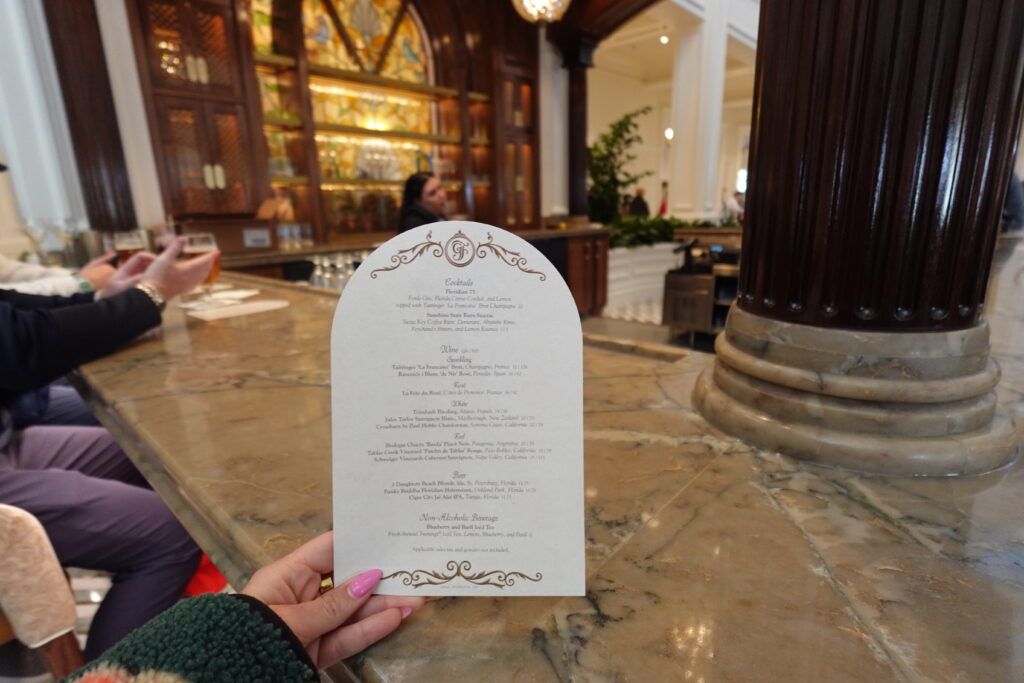 GF
Cocktails
Floridian 75
Fords Gin, Florida Citrus Cordial, and Lemon
topped with Taittinger 'La Française' Brut Champagne 22
Sunshine State Rum Sazerac
Siesta Key Coffee Rum, Demerara, Absinthe Rinse,
Peychaud's Bitters, and Lemon Essence
Wine
Sparkling
Taittinger 'La Française' Brut, Champagne, France
Raventós i Blanc 'de Nit' Rosé, Penedès, Spain
Rosé
La Fête du Rosé, Côtes de Provence, France
White
Trimbach Riesling, Alsace, France
Jules Taylor Sauvignon Blanc, Marlborough, New Zealand
Crossbarn by Paul Hobbs Chardonnay, Sonoma Coast, California
Red
Bodega Chacra 'Barda' Pinot Noir, Patagonia, Argentina
Tablas Creek Vineyard 'Patelin de Tablas' Rouge, Paso Robles, California
Schweiger Vineyards Cabernet Sauvignon, Napa Valley, California
Beer
3 Daughters Beach Blonde Ale, St. Petersburg, Florida
Funky Buddha Floridian Hefeweizen, Oakland Park, Florida
Cigar City Jai Alai IPA, Tampa, Florida
Non-Alcoholic Beverage
Blueberry and Basil Iced Tea
Fresh-brewed Twinings® Iced Tea, Lemon, Blueberry, and Basil
Applicable sales tax and gratuity not included.